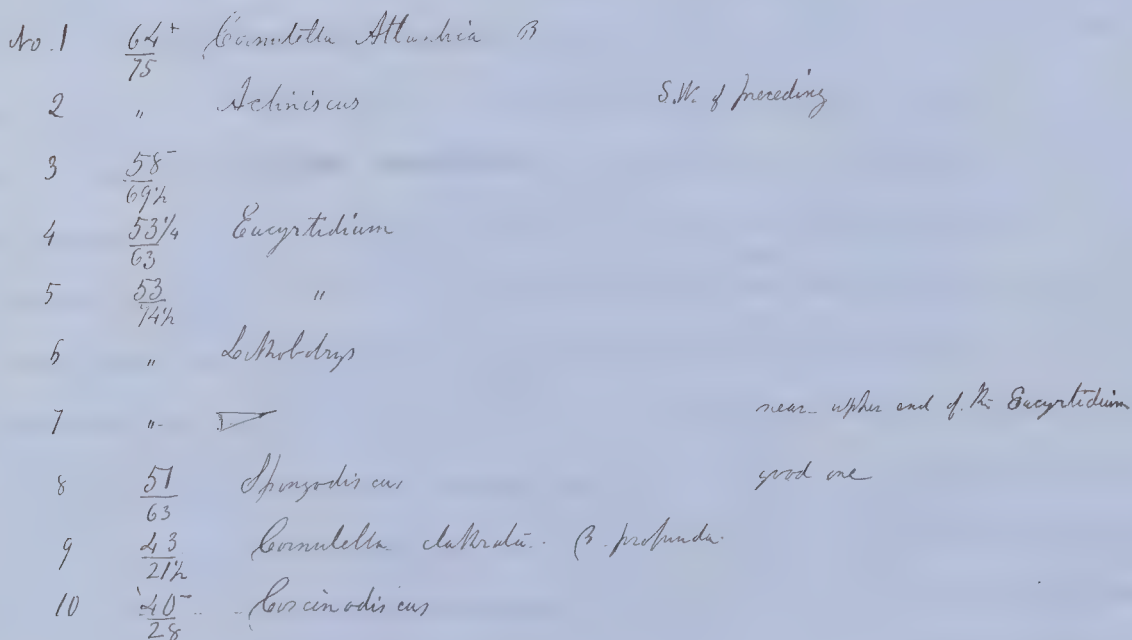 No. 1 64+/75 Cornutella Atlantica B
2 " Actiniscus S.W. of preceding
3 58-/69½
4 53¼/63 Eucyrtidium
5 53/74½ "
6 " Lithobotrys
7 " near upper end of the Eucyrtidium
8 51/63 Spongodiscus good one
9 43/21½ Cornutella clathrata. β. profunda.
10 40-/28 Coscinodiscus